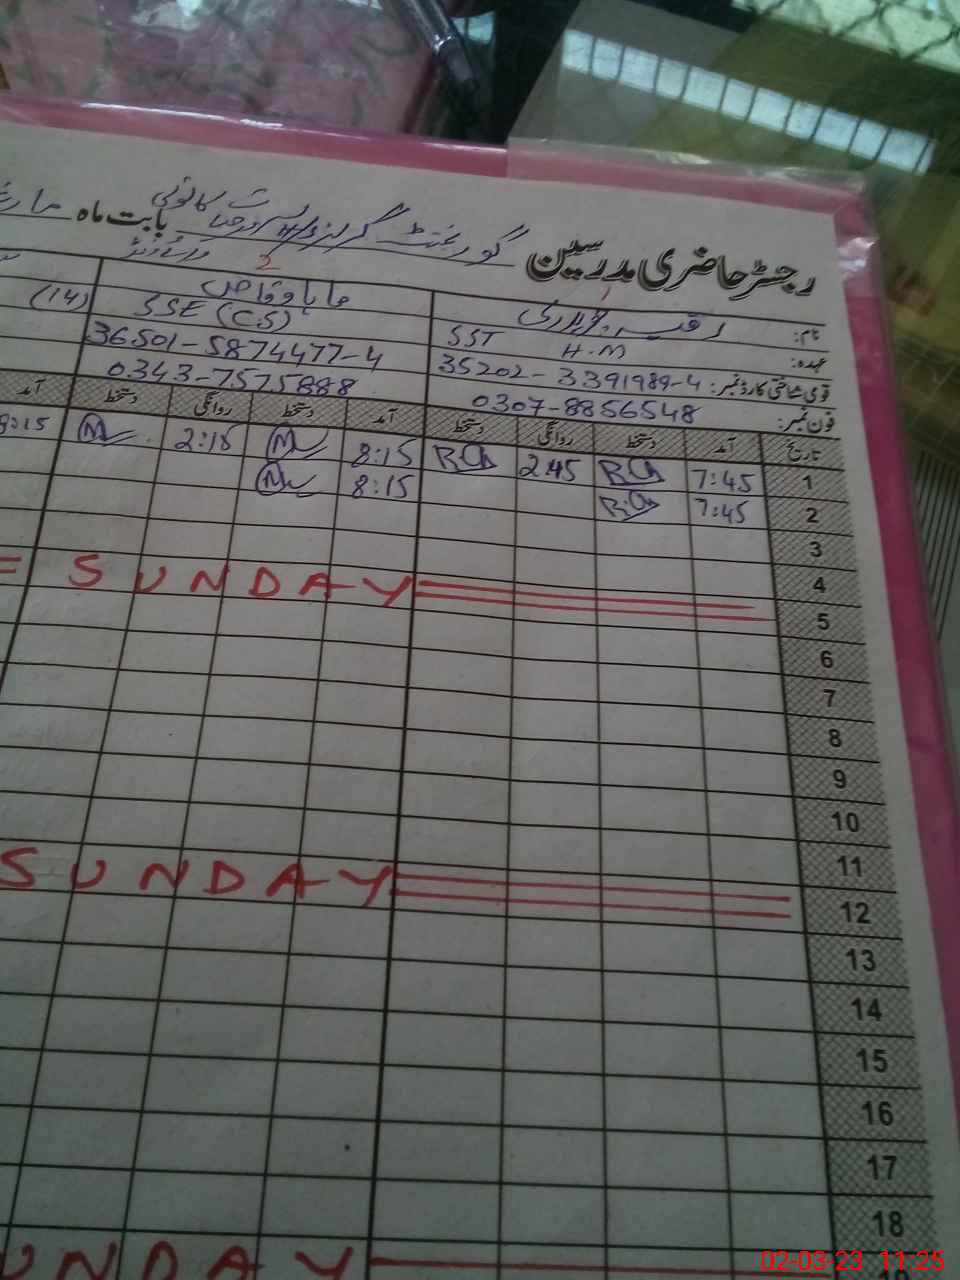 رجسٹر حاضری مدرسین گورنمنٹ گرلز بابت ماہ
1 2
نام:
عہدہ: SST H.M SSE (CS) (14)
قومی شناختی کارڈ نمبر: 35202-3391989-4 36501-5874477-4
فون نمبر: 0307-8856548 0343-7575888
تاریخ آمد دستخط روانگی دستخط آمد دستخط روانگی دستخط آمد
1 7:45 2:45 8:15 2:15 8:15
2 7:45 8:15
3
4
5 SUNDAY
6
7
8
9
10
11
12 SUNDAY
13
14
15
16
17
18
SUNDAY
02-03-23 11:25